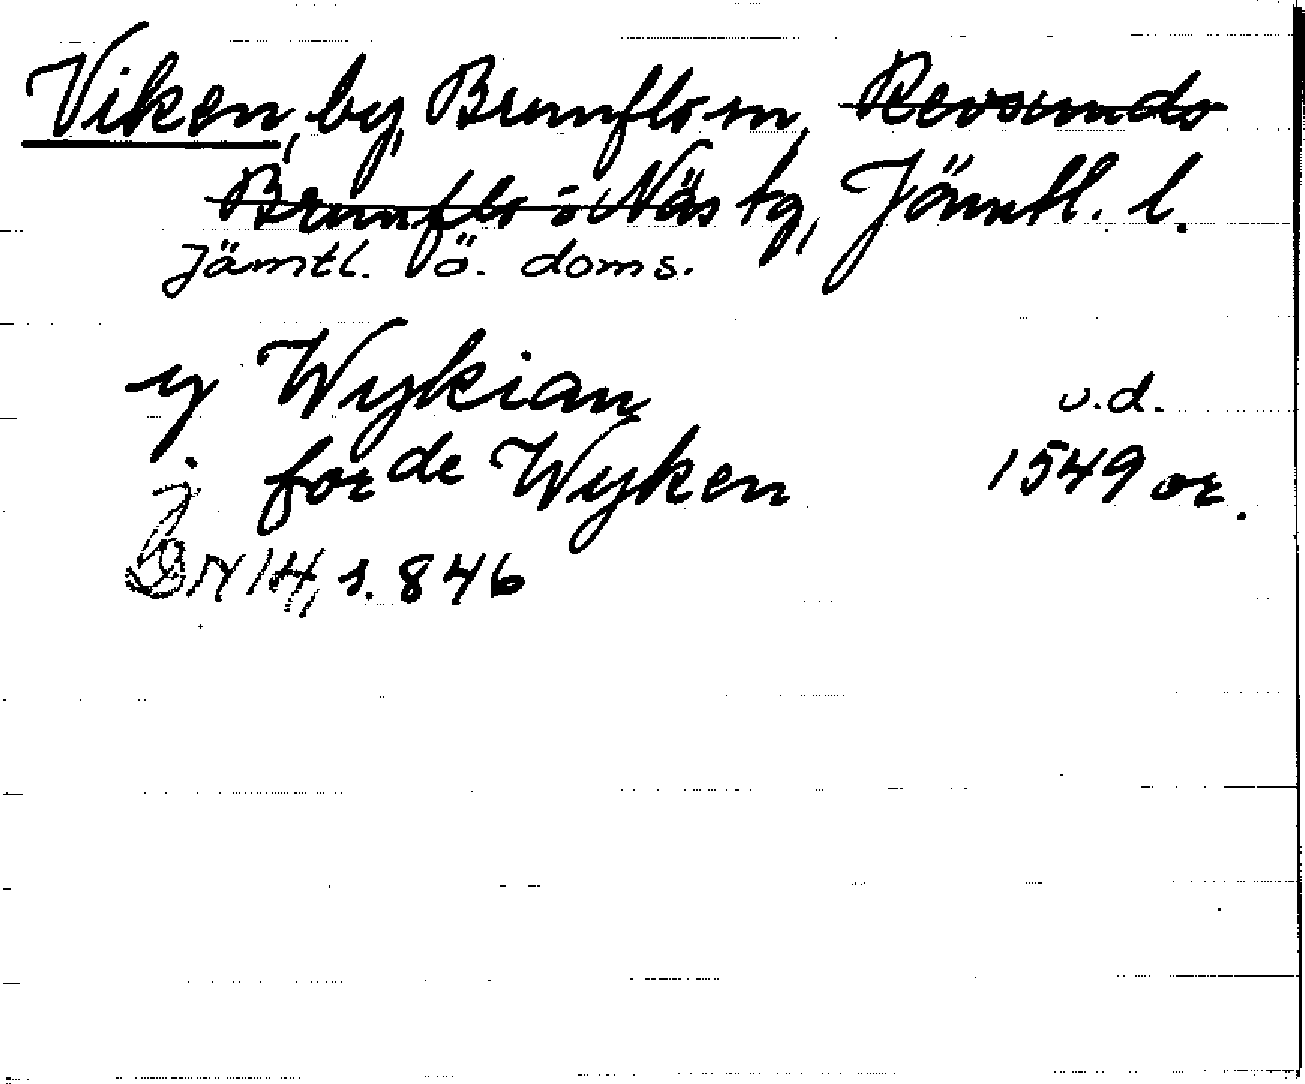 Viken, by, Brunflo sn, Revsunds
Brunflo o Näs tg, Jämtl. l.
Jämtl. ö. doms.
y Wykian u.d.
j forde Wyken 1549 or.
N 14, s. 846